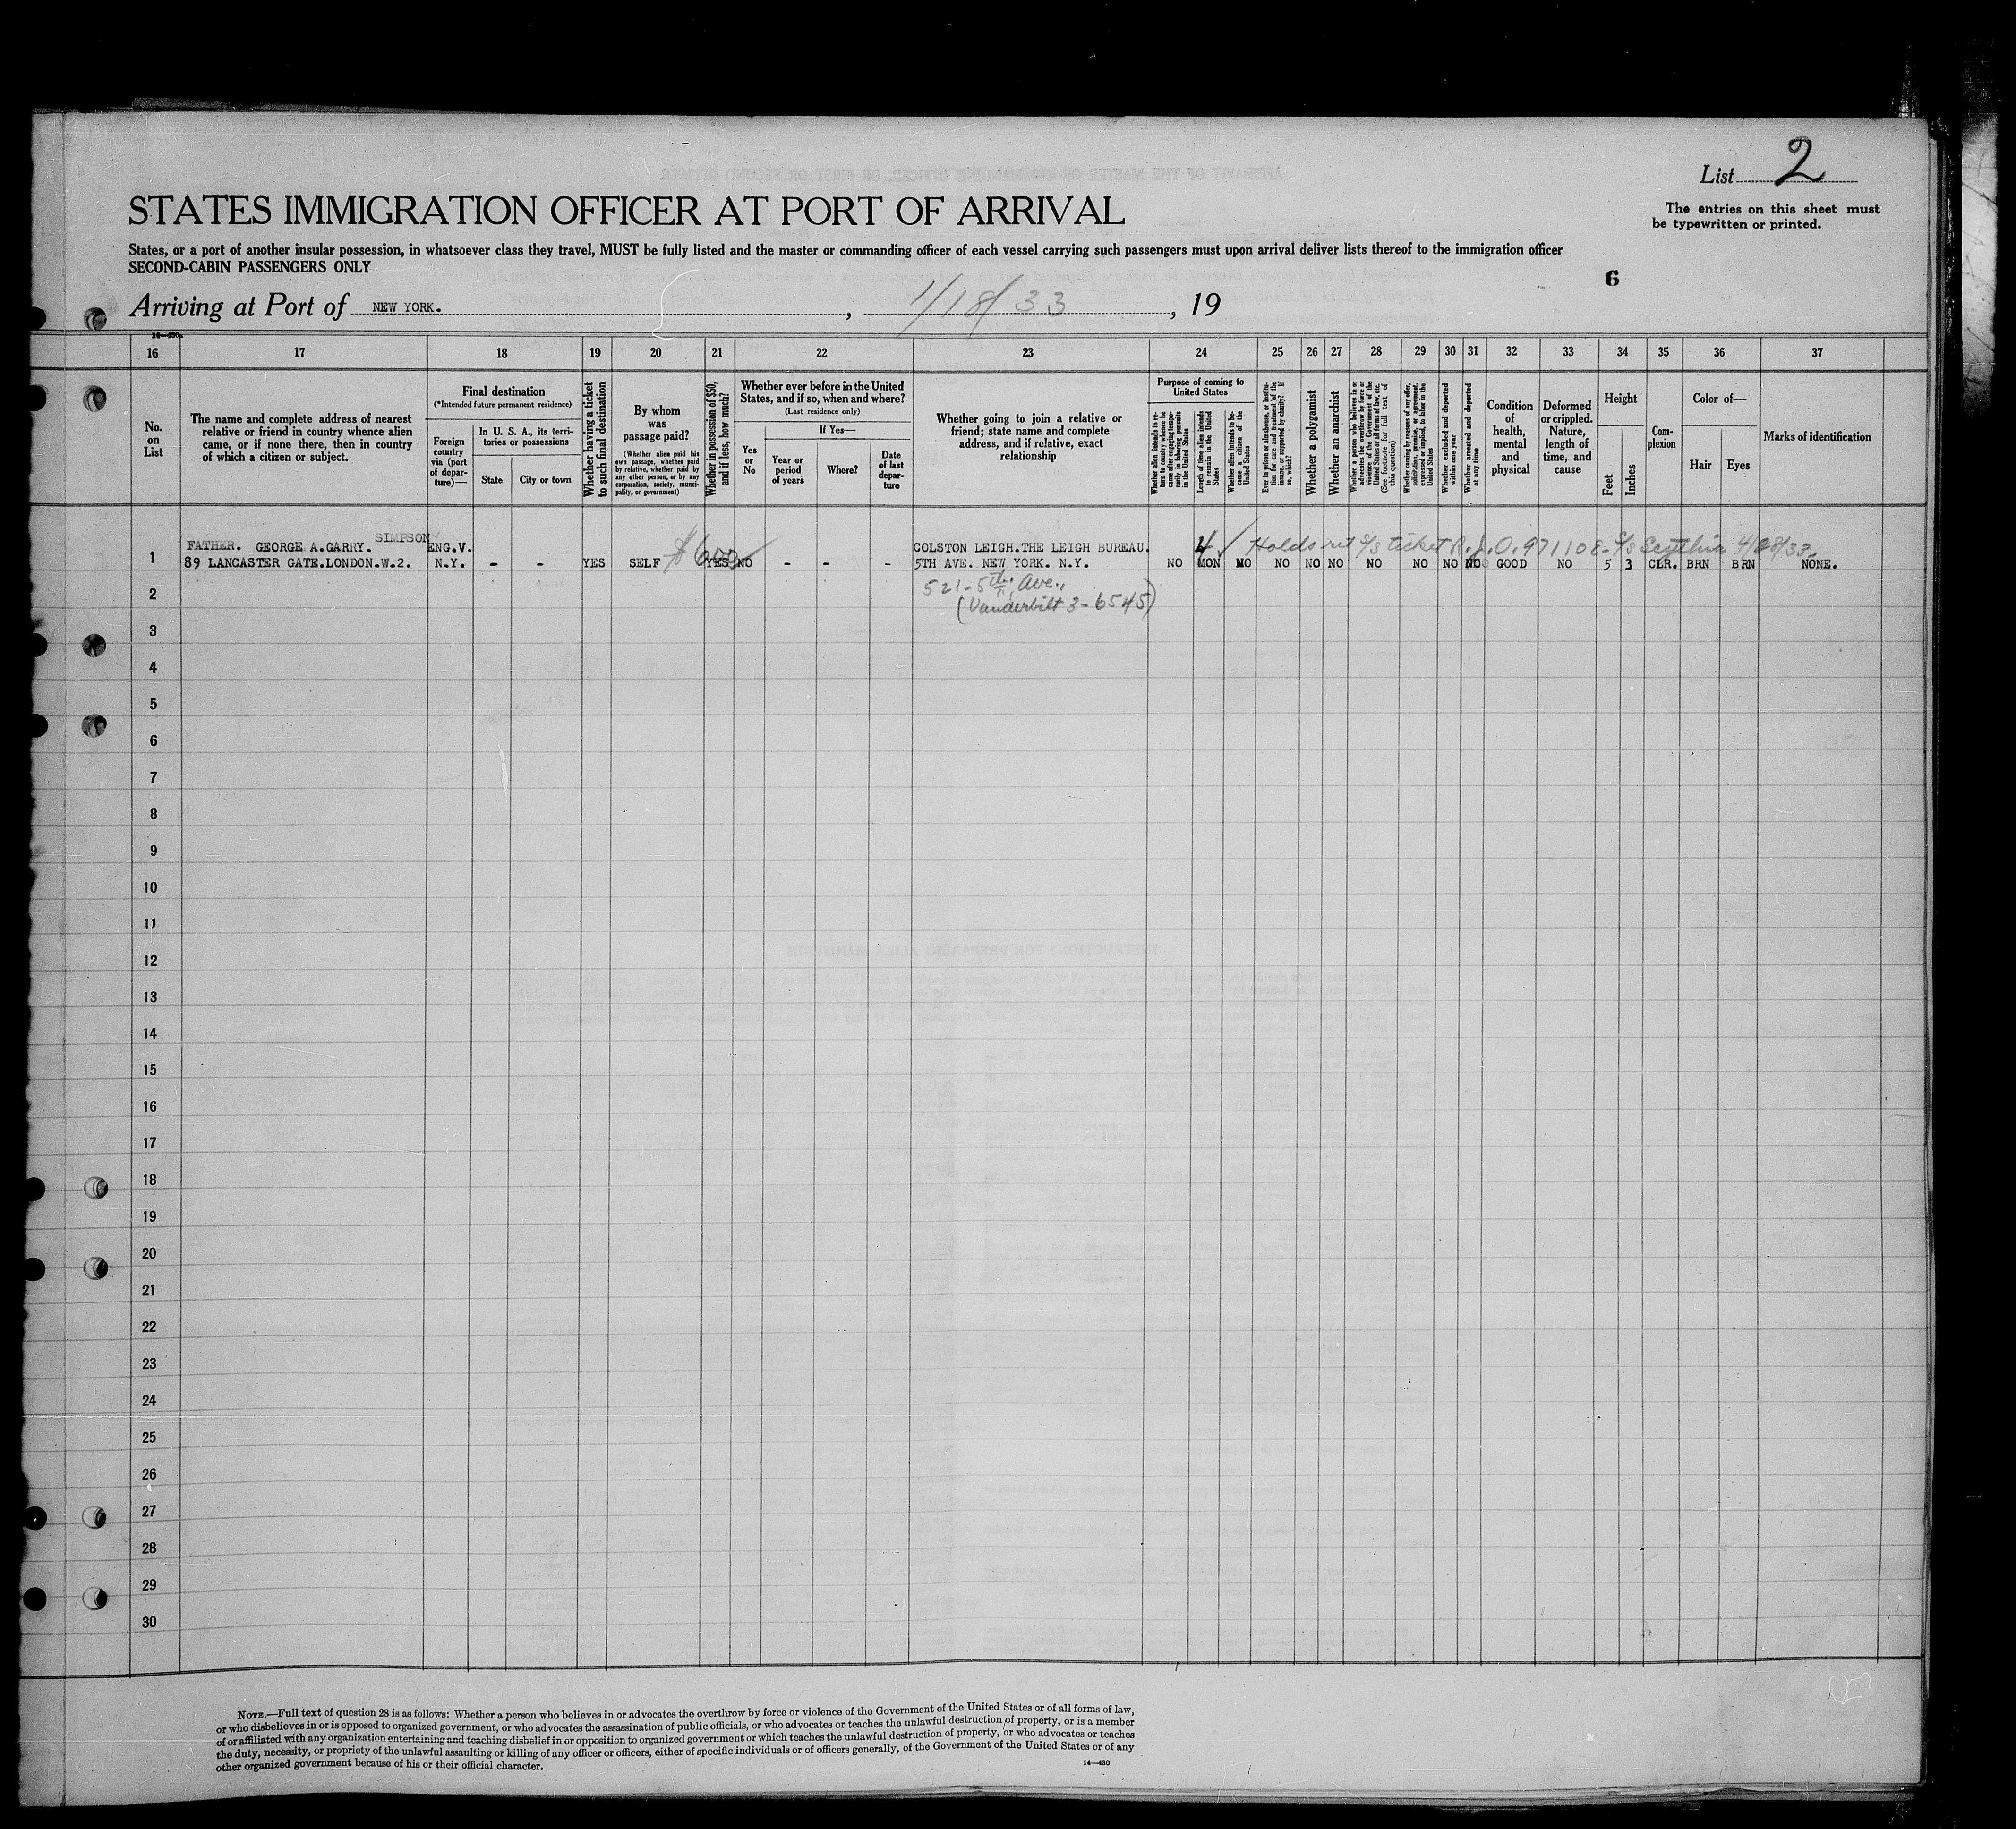 List 2
STATES IMMIGRATION OFFICER AT PORT OF ARRIVAL
The entries on this sheet must
be typewritten or printed.
States, or a port of another insular possession, in whatsoever class they travel, MUST be fully listed and the master or commanding officer of each vessel carrying such passengers must upon arrival deliver lists thereof to the immigration officer
SECOND-CABIN PASSENGERS ONLY
6
Arriving at Port of NEW YORK. , 1/18/33 , 19
14—430a
16 17 18 19 20 21 22 23 24 25 26 27 28 29 30 31 32 33 34 35 36 37
No.
on
List
The name and complete address of nearest
relative or friend in country whence alien
came, or if none there, then in country
of which a citizen or subject.
Final destination
(*Intended future permanent residence)
Foreign
country
via (port
of depar-
ture)—
In U. S. A., its terri-
tories or possessions
State
City or town
Whether having a ticket
to such final destination
By whom
was
passage paid?
(Whether alien paid his
own passage, whether paid
by relative, whether paid by
any other person, or by any
corporation, society, munici-
pality, or government)
Whether in possession of $50,
and if less, how much?
Whether ever before in the United
States, and if so, when and where?
(Last residence only)
Yes
or
No
If Yes—
Year or
period
of years
Where?
Date
of last
depar-
ture
Whether going to join a relative or
friend; state name and complete
address, and if relative, exact
relationship
Purpose of coming to
United States
Whether alien intends to re-
turn to country whence he
came after engaging tempo-
rarily in laboring pursuits
in the United States
Length of time alien intends
to remain in the United
States
Whether alien intends to be-
come a citizen of the
United States
Ever in prison or almshouse, or institu-
tion for care and treatment of the
insane, or supported by charity? If
so, which?
Whether a polygamist
Whether an anarchist
Whether a person who believes in or
advocates the overthrow by force or
violence of the Government of the
United States or all forms of law, etc.
(See footnote for full text of
this question)
Whether coming by reasons of any offer,
solicitation, promise, or agreement,
expressed or implied, to labor in the
United States
Whether excluded and deported
within one year
Whether arrested and deported
at any time
Condition
of
health,
mental
and
physical
Deformed
or crippled.
Nature,
length of
time, and
cause
Height
Feet
Inches
Com-
plexion
Color of—
Hair
Eyes
Marks of identification
SIMPSON
FATHER. GEORGE A.GARRY. ENG.V. $600 COLSTON LEIGH.THE LEIGH BUREAU. 4 Holds ret S/S ticket R.J.O. 971108 - S/S Scythia
1 89 LANCASTER GATE.LONDON.W.2. N.Y. - - YES SELF YES NO - - - 5TH AVE. NEW YORK. N.Y. NO MON NO NO NO NO NO NO NO NO GOOD NO 5 3 CLR. BRN BRN NONE.
521-5th Ave.,
2 (Vanderbilt 3-6545)
3
4
5
6
7
8
9
10
11
12
13
14
15
16
17
18
19
20
21
22
23
24
25
26
27
28
29
30
NOTE.—Full text of question 28 is as follows: Whether a person who believes in or advocates the overthrow by force or violence of the Government of the United States or of all forms of law,
or who disbelieves in or is opposed to organized government, or who advocates the assassination of public officials, or who advocates or teaches the unlawful destruction of property, or is a member
of or affiliated with any organization entertaining and teaching disbelief in or opposition to organized government or which teaches the unlawful destruction of property, or who advocates or teaches
the duty, necessity, or propriety of the unlawful assaulting or killing of any officer or officers, either of specific individuals or of officers generally, of the Government of the United States or of any
other organized government because of his or their official character.
14—430